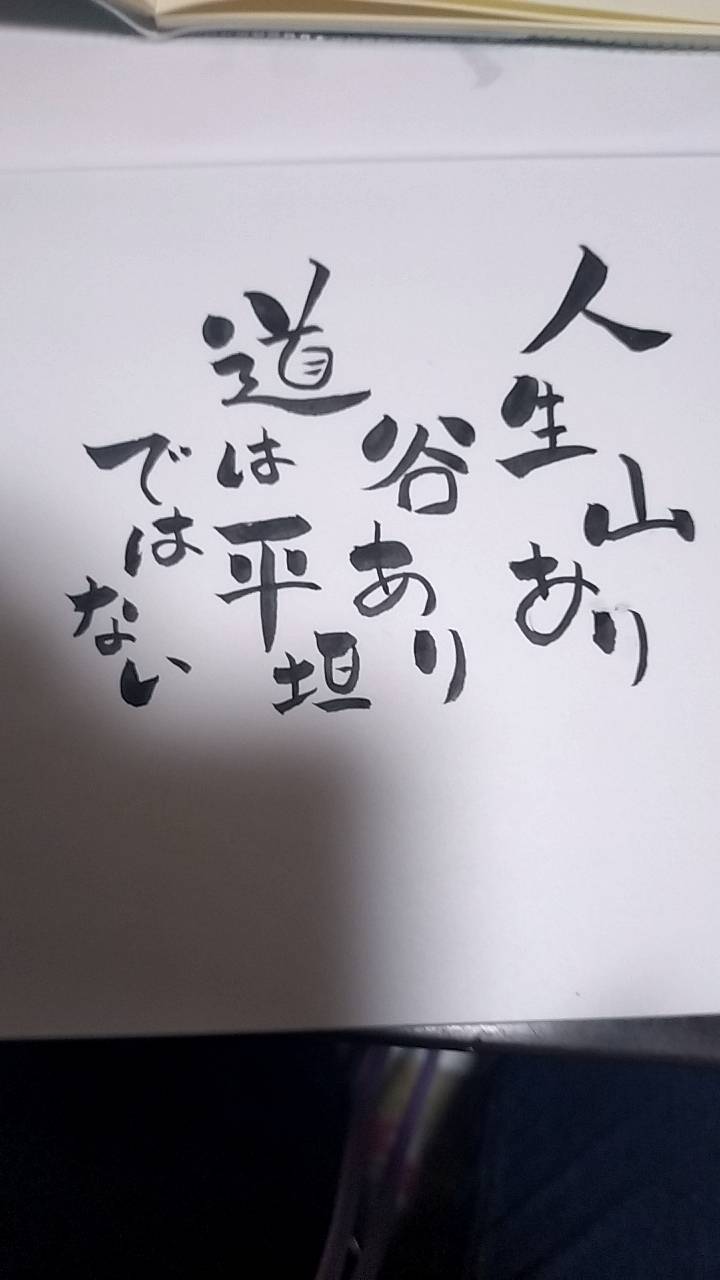 人生山あり
谷あり
道は平垣
ではない